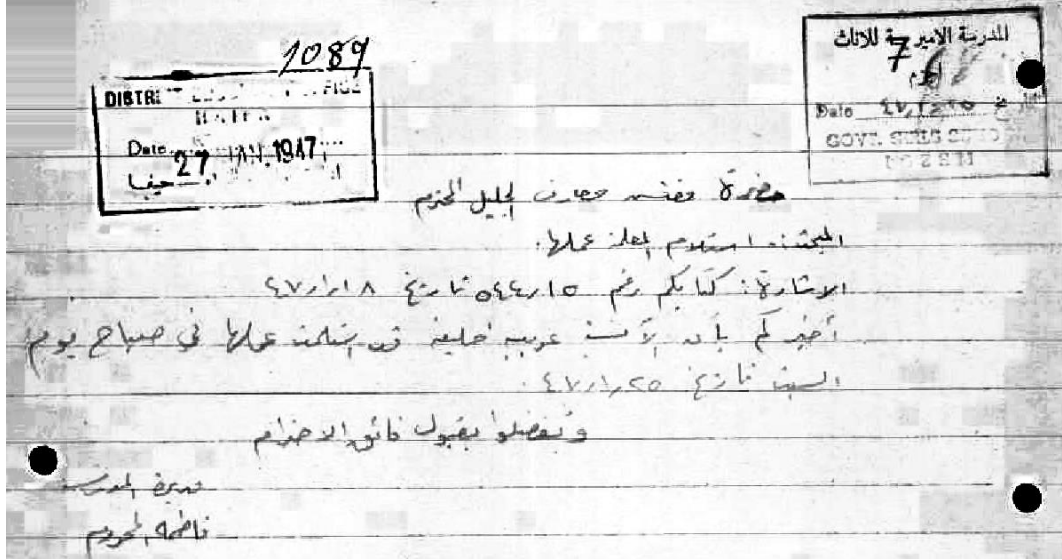 1089
DISTRICT EDUCATION OFFICE
HAIFA
Date 27 JAN. 1947
حيفا
المدرسة الاميرية للاناث
7
Date ٤٧/١/٢٥
GOVT. GIRLS SCHOOL
حضرة مفتش معارف الجليل المحترم
المبحث: استلام المعلمة عملها.
الاشارة: كتابكم رقم ٥٤٤/١٥ تاريخ ٤٧/١/١٨
أخبركم بأن الآنسة عربيه خليفه قد استلمت عملها في صباح يوم
السبت تاريخ ٤٧/١/٢٥.
وتفضلوا بقبول فائق الاحترام
مديرة المدرسة
فاطمة